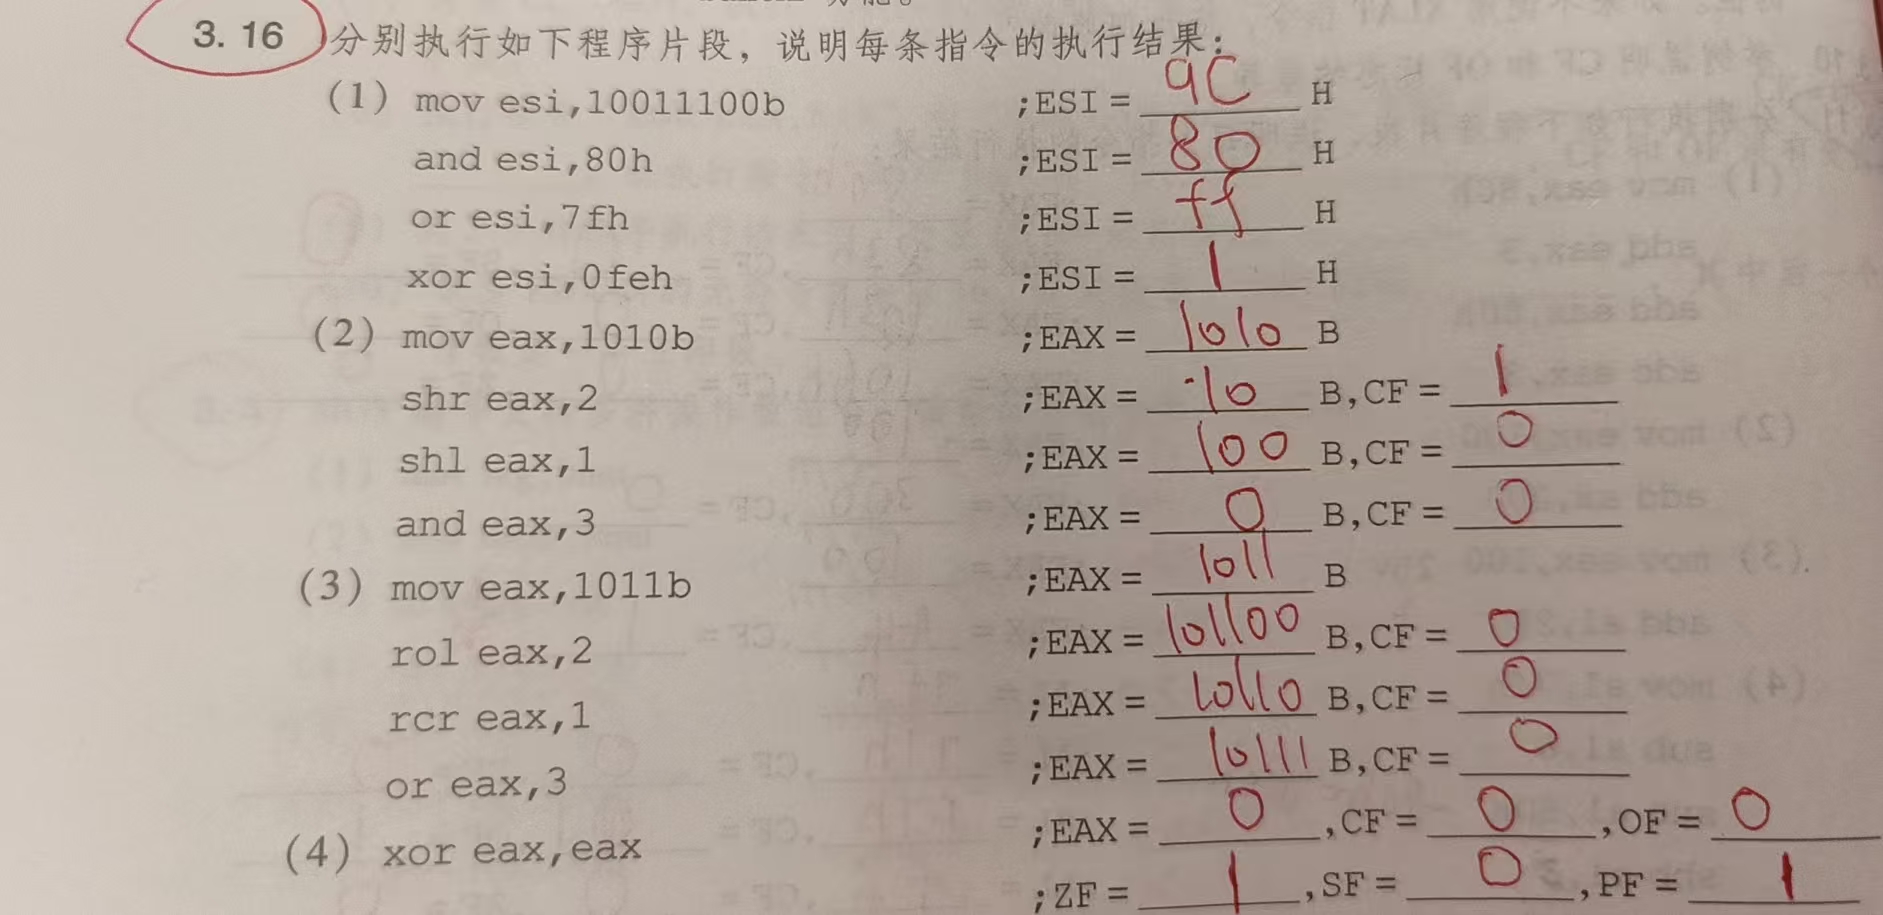 3. 16 分别执行如下程序片段，说明每条指令的执行结果：
(1) mov esi,10011100b ;ESI = 9C H
and esi,80h ;ESI = 80 H
or esi,7fh ;ESI = ff H
xor esi,0feh ;ESI = 1 H
(2) mov eax,1010b ;EAX = 1010 B
shr eax,2 ;EAX = 10 B,CF = 1
shl eax,1 ;EAX = 100 B,CF = 0
and eax,3 ;EAX = 0 B,CF = 0
(3) mov eax,1011b ;EAX = 1011 B
rol eax,2 ;EAX = 101100 B,CF = 0
rcr eax,1 ;EAX = 10110 B,CF = 0
or eax,3 ;EAX = 10111 B,CF = 0
(4) xor eax,eax ;EAX = 0 ,CF = 0 ,OF = 0
;ZF = 1 ,SF = 0 ,PF = 1